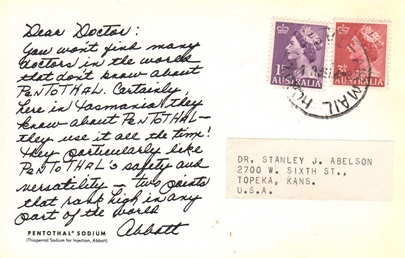 Dear Doctor:
You won't find many
doctors in the world
that don't know about
PENTOTHAL. Certainly,
here in Tasmania they
know about PENTOTHAL—
they use it all the time!
They particularly like
PENTOTHAL's safety and
versatility — two points
that rank high in any
part of the world
Abbott
PENTOTHAL® SODIUM
(Thiopental Sodium for Injection, Abbott)
AUSTRALIA
AUSTRALIA
MAIL
DR. STANLEY J. ABELSON
2700 W. SIXTH ST.,
TOPEKA, KANS.
U.S.A.